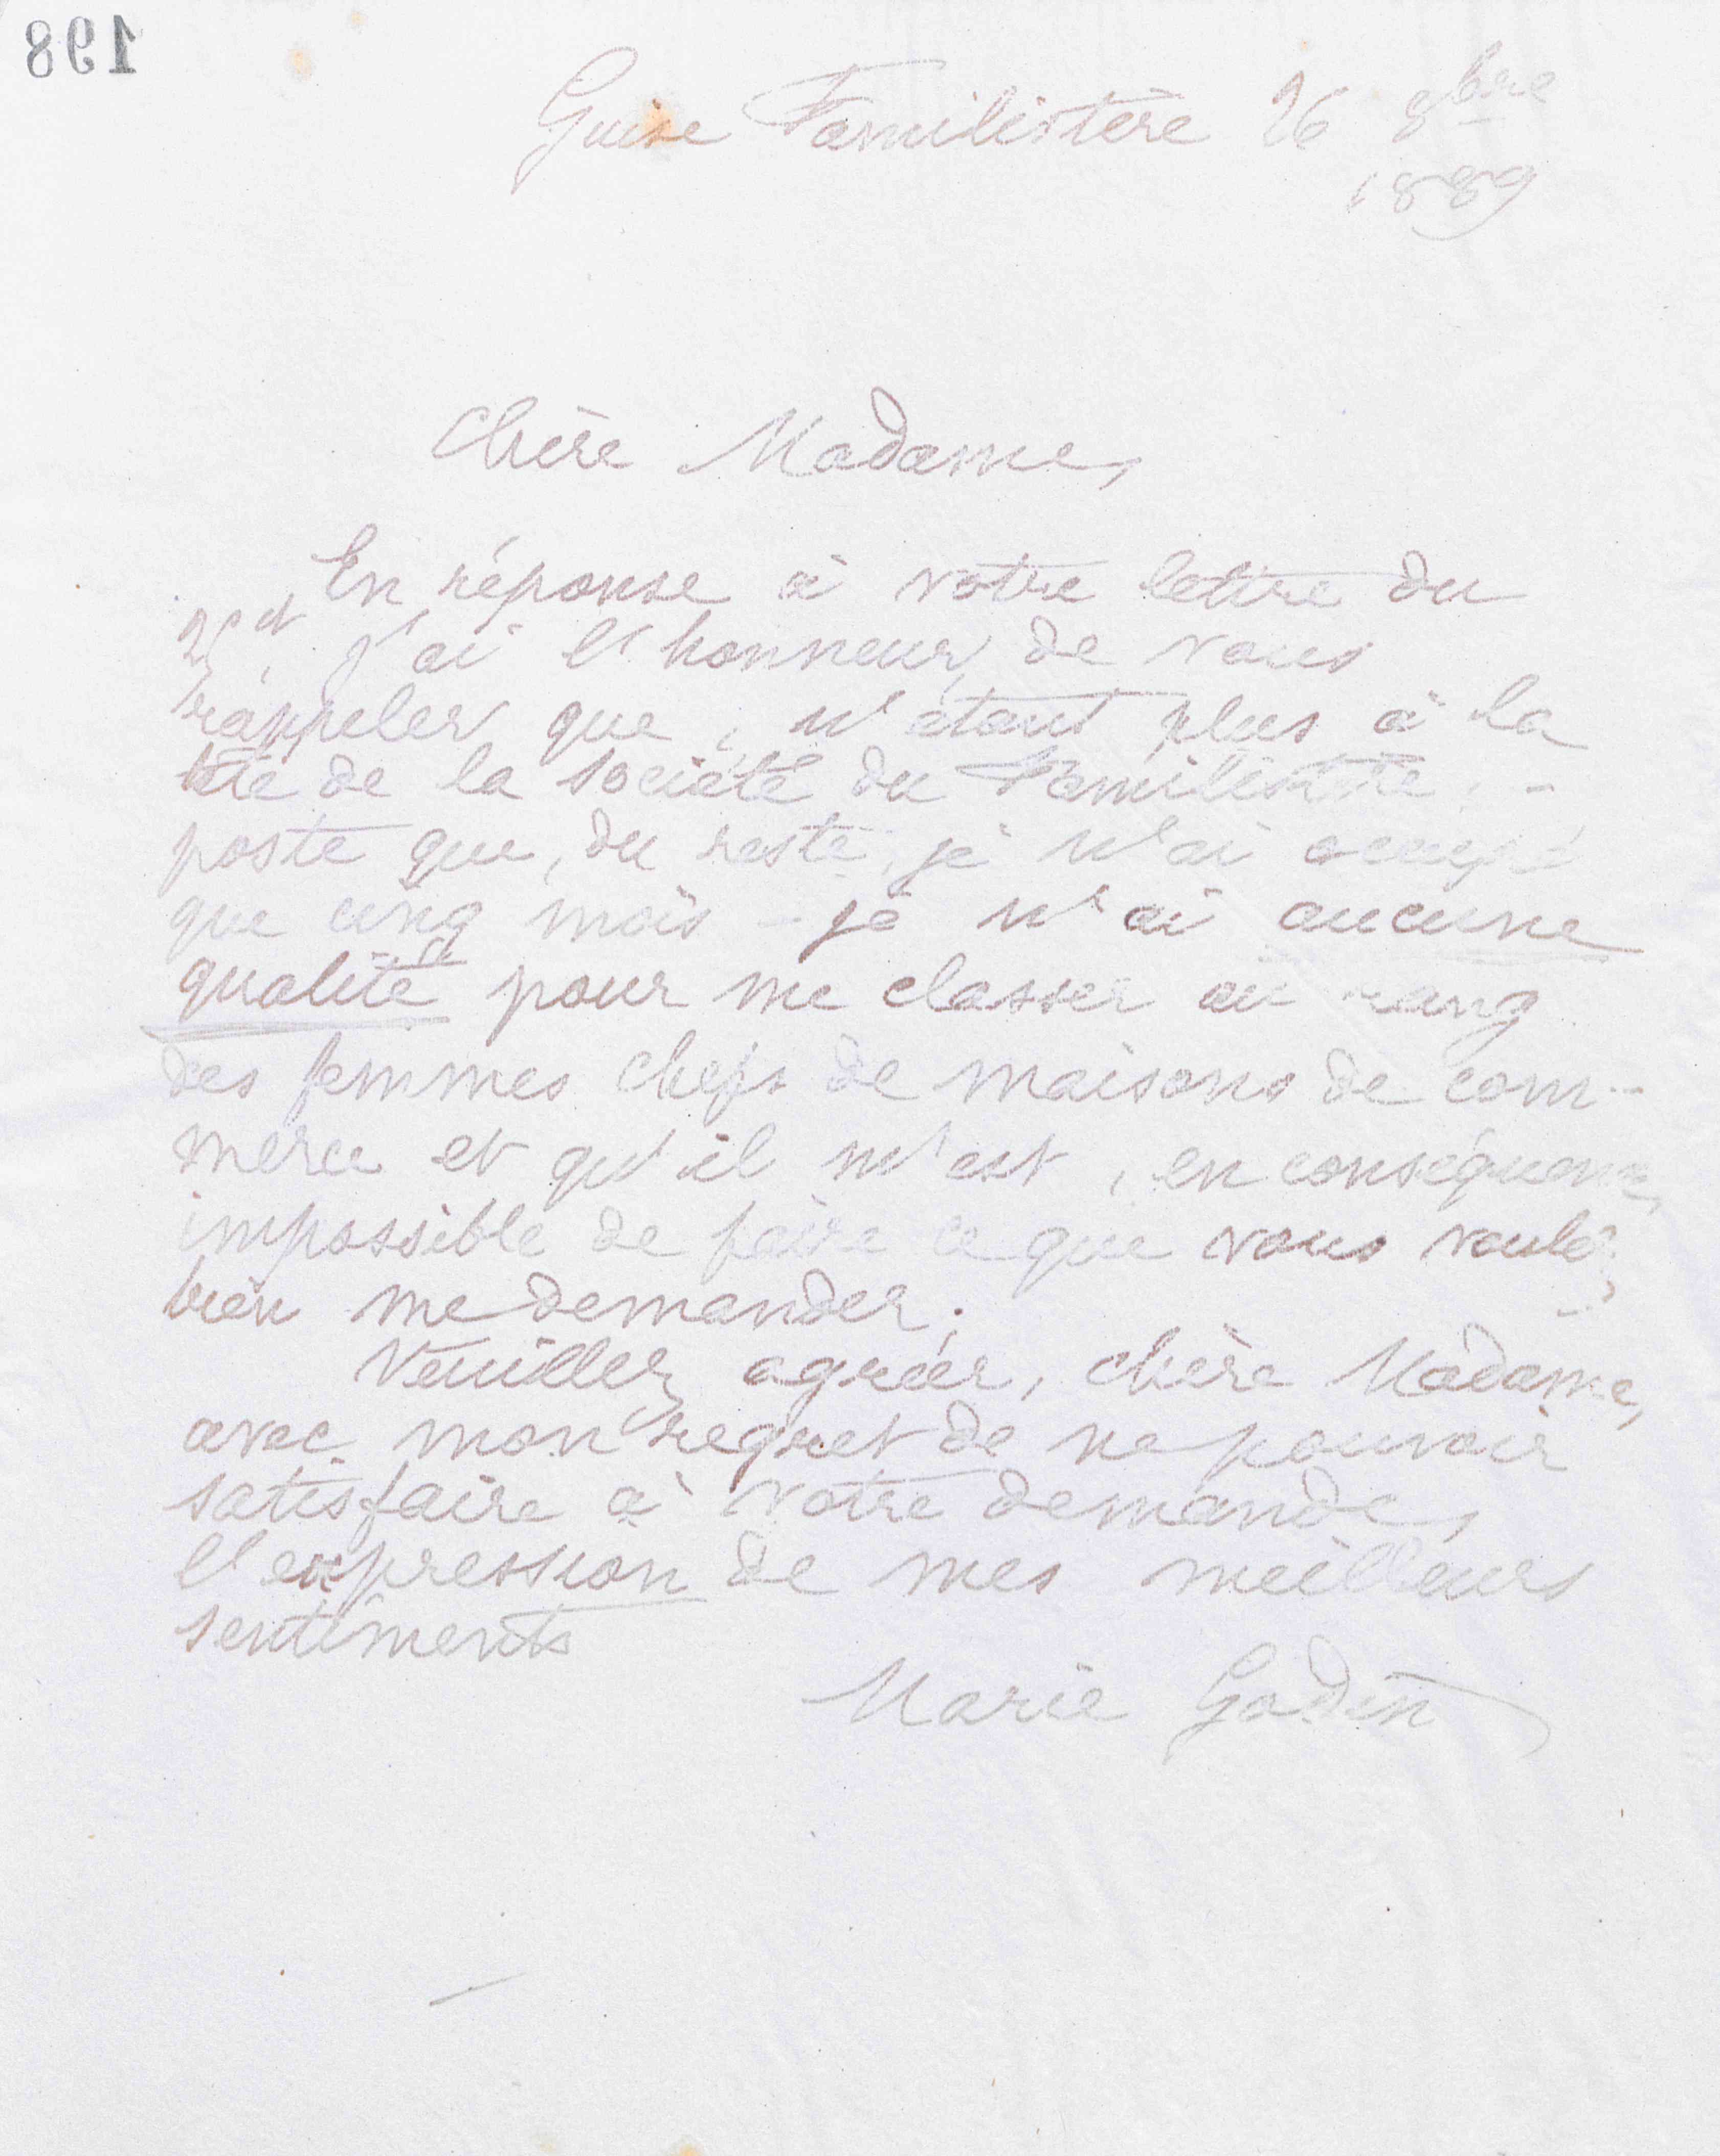 198
Guise Familistère 26 8bre
1889
Chère Madame,
En réponse à votre lettre du
25 ct, j'ai l'honneur de vous
rappeler que, n'étant plus à la
tête de la société du Familistère, -
poste que, du reste, je n'ai occupé
que cinq mois - je n'ai aucune
qualité pour me classer au rang
des femmes chefs de maisons de com-
merce et qu'il m'est, en conséquence,
impossible de faire ce que vous voulez
bien me demander.
Veuillez agréer, chère Madame,
avec mon regret de ne pouvoir
satisfaire à votre demande,
l'expression de mes meilleurs
sentiments
Marie Godin